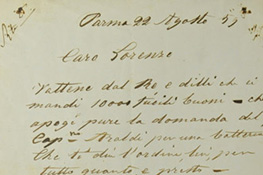 Parma 22 Agosto 59
Caro Lorenzo
Vattene dal Re e dilli che ci
mandi 10000 fucili buoni – che
apogi pure la domanda del
Cap.ne Araldi per una batteria
che te dii l'ordine lui, per
tutto quanto e presto –